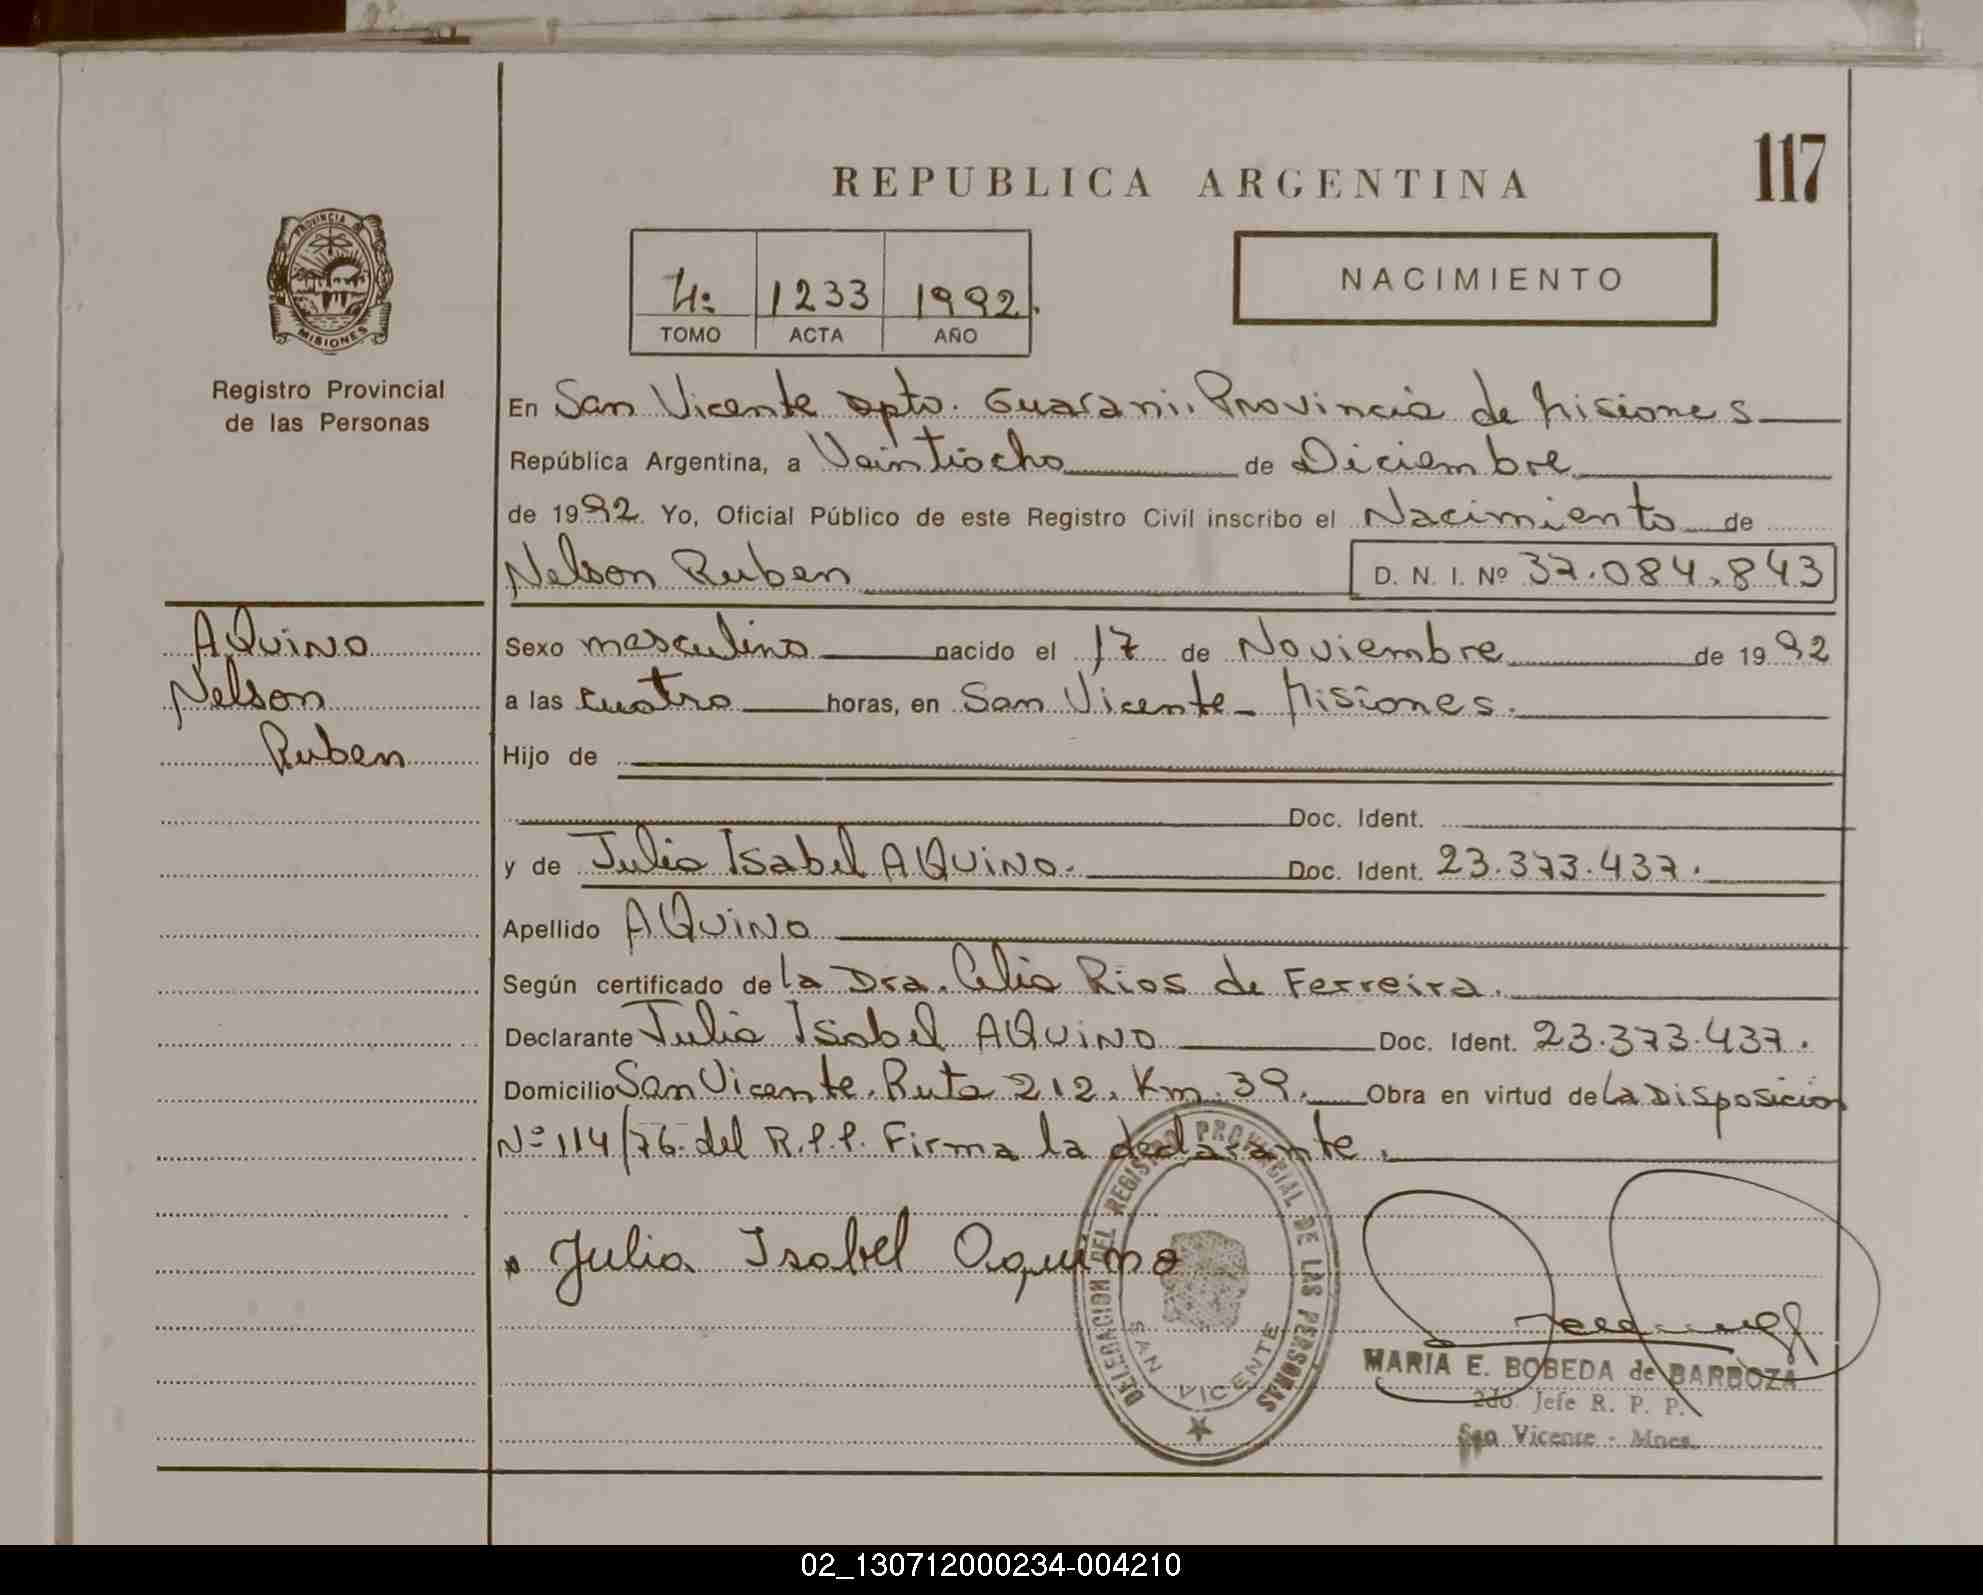 117
REPUBLICA ARGENTINA
NACIMIENTO
PROVINCIA DE
MISIONES
Registro Provincial
de las Personas
4º 1233 1992.
TOMO ACTA AÑO
En San Vicente Dpto. Guarani. Provincia de Misiones
República Argentina, a Veintiocho de Diciembre
de 1992. Yo, Oficial Público de este Registro Civil inscribo el Nacimiento de
Nelson Ruben D. N. I. Nº 37.084.843
AQUINO
Nelson
Ruben
Sexo masculino nacido el 17 de Noviembre de 1992
a las cuatro horas, en San Vicente - Misiones.
Hijo de
Doc. Ident.
y de Julia Isabel AQUINO. Doc. Ident. 23.373.437.
Apellido AQUINO
Según certificado de la Dra. Celia Rios de Ferreira.
Declarante Julia Isabel AQUINO Doc. Ident. 23.373.437.
Domicilio San Vicente. Ruta 212. Km. 39. Obra en virtud de la Disposicion
Nº 114/76 del R.P.P. Firma la declarante.
Julia Isabel Aquino
DELEGACION DEL REGISTRO PROVINCIAL DE LAS PERSONAS
SAN VICENTE
MARIA E. BOBEDA de BARBOZA
2do. Jefe R. P. P.
San Vicente - Mnes.
02_130712000234-004210